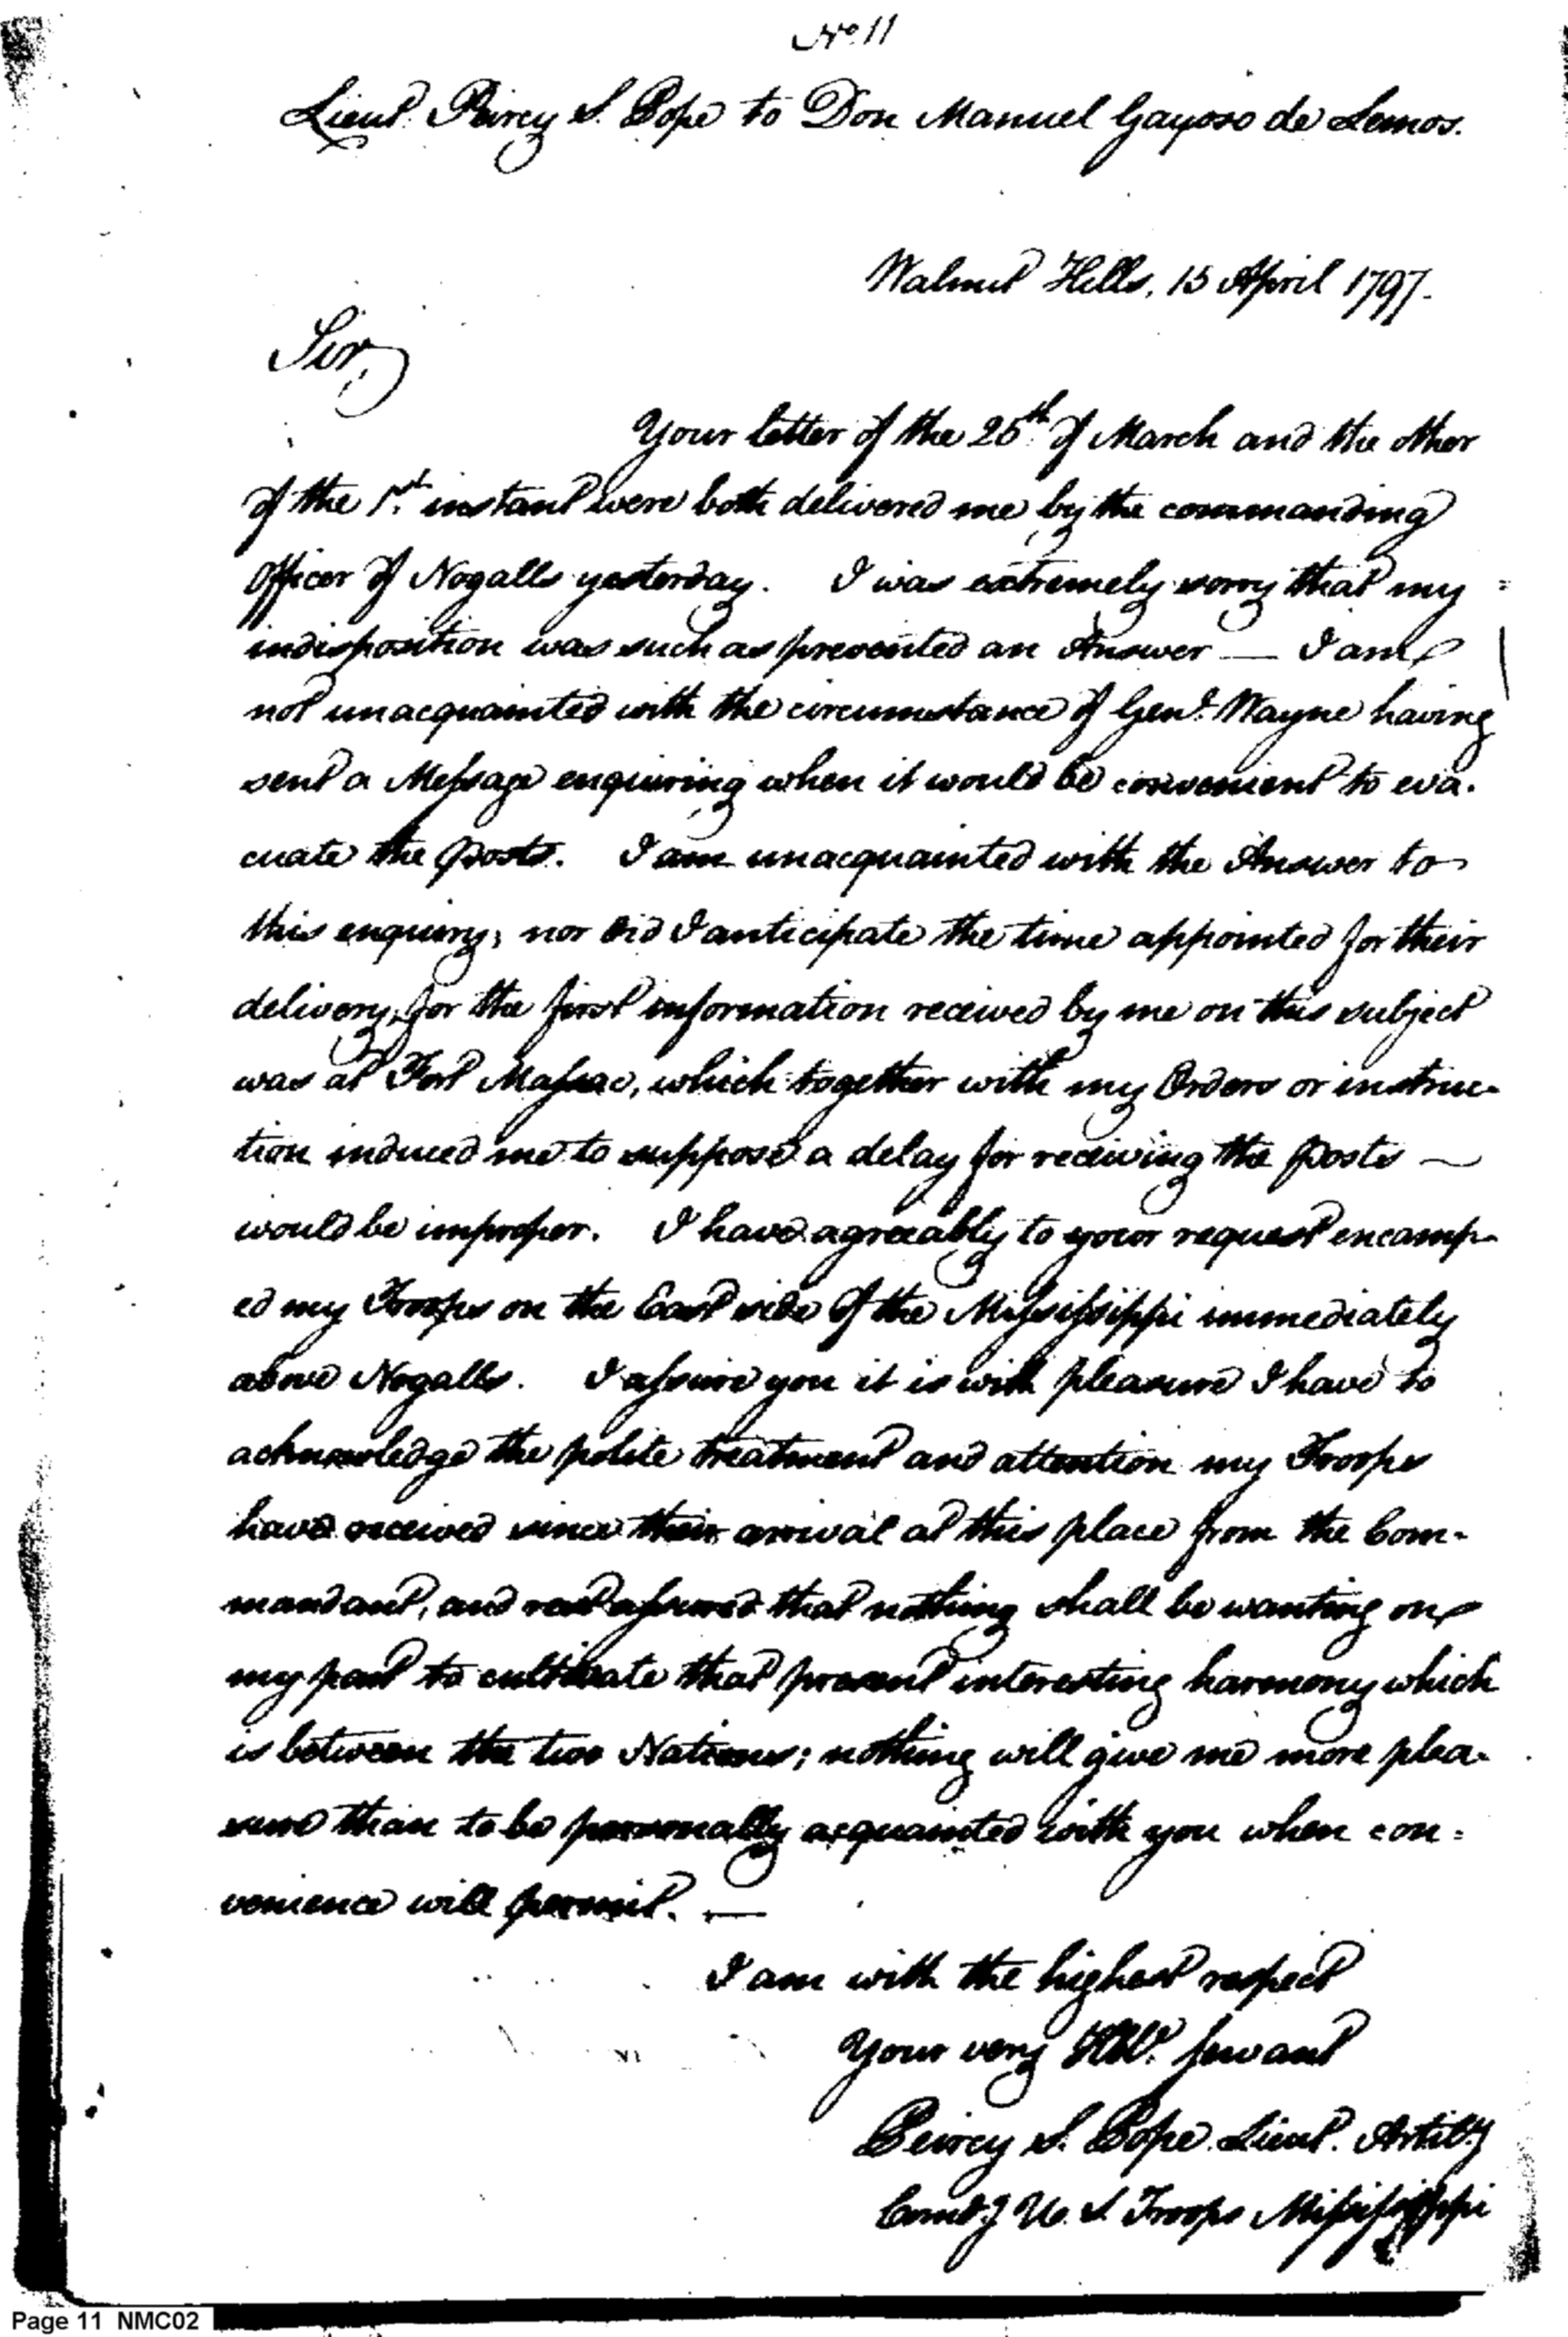 No. 11
Lieut. Peircy S. Pope to Don Manuel Gayoso de Lemos.
Walnut Hills, 15 April 1797.
Sir,
Your letter of the 25th. of March and the other
of the 1st. instant were both delivered me by the commanding
officer of Nogalls yesterday. I was extremely sorry that my
indisposition was such as prevented an Answer — I am
not unacquainted with the circumstance of Genl. Wayne having
sent a Message enquiring when it would be convenient to eva-
cuate the posts. I am unacquainted with the Answer to
this enquiry; nor did I anticipate the time appointed for their
delivery, for the first information received by me on this subject
was at Fort Massac, which together with my Orders or instruc-
tion induced me to suppose a delay for receiving the posts —
would be improper. I have agreeably to your request encamp-
ed my Troops on the East side of the Mississippi immediately
above Nogalls. I assure you it is with pleasure I have to
acknowledge the polite treatment and attention my Troops
have received since their arrival at this place from the Com-
mandant, and rest assured that nothing shall be wanting on
my part to cultivate that present interesting harmony which
is between the two Nations; nothing will give me more plea-
sure than to be personally acquainted with you when con=
venience will permit. —
I am with the highest respect
Your very Hbl. servant
Peircy S. Pope Lieut. Artily
Comdg U. S. Troops Mississippi
Page 11 NMC02